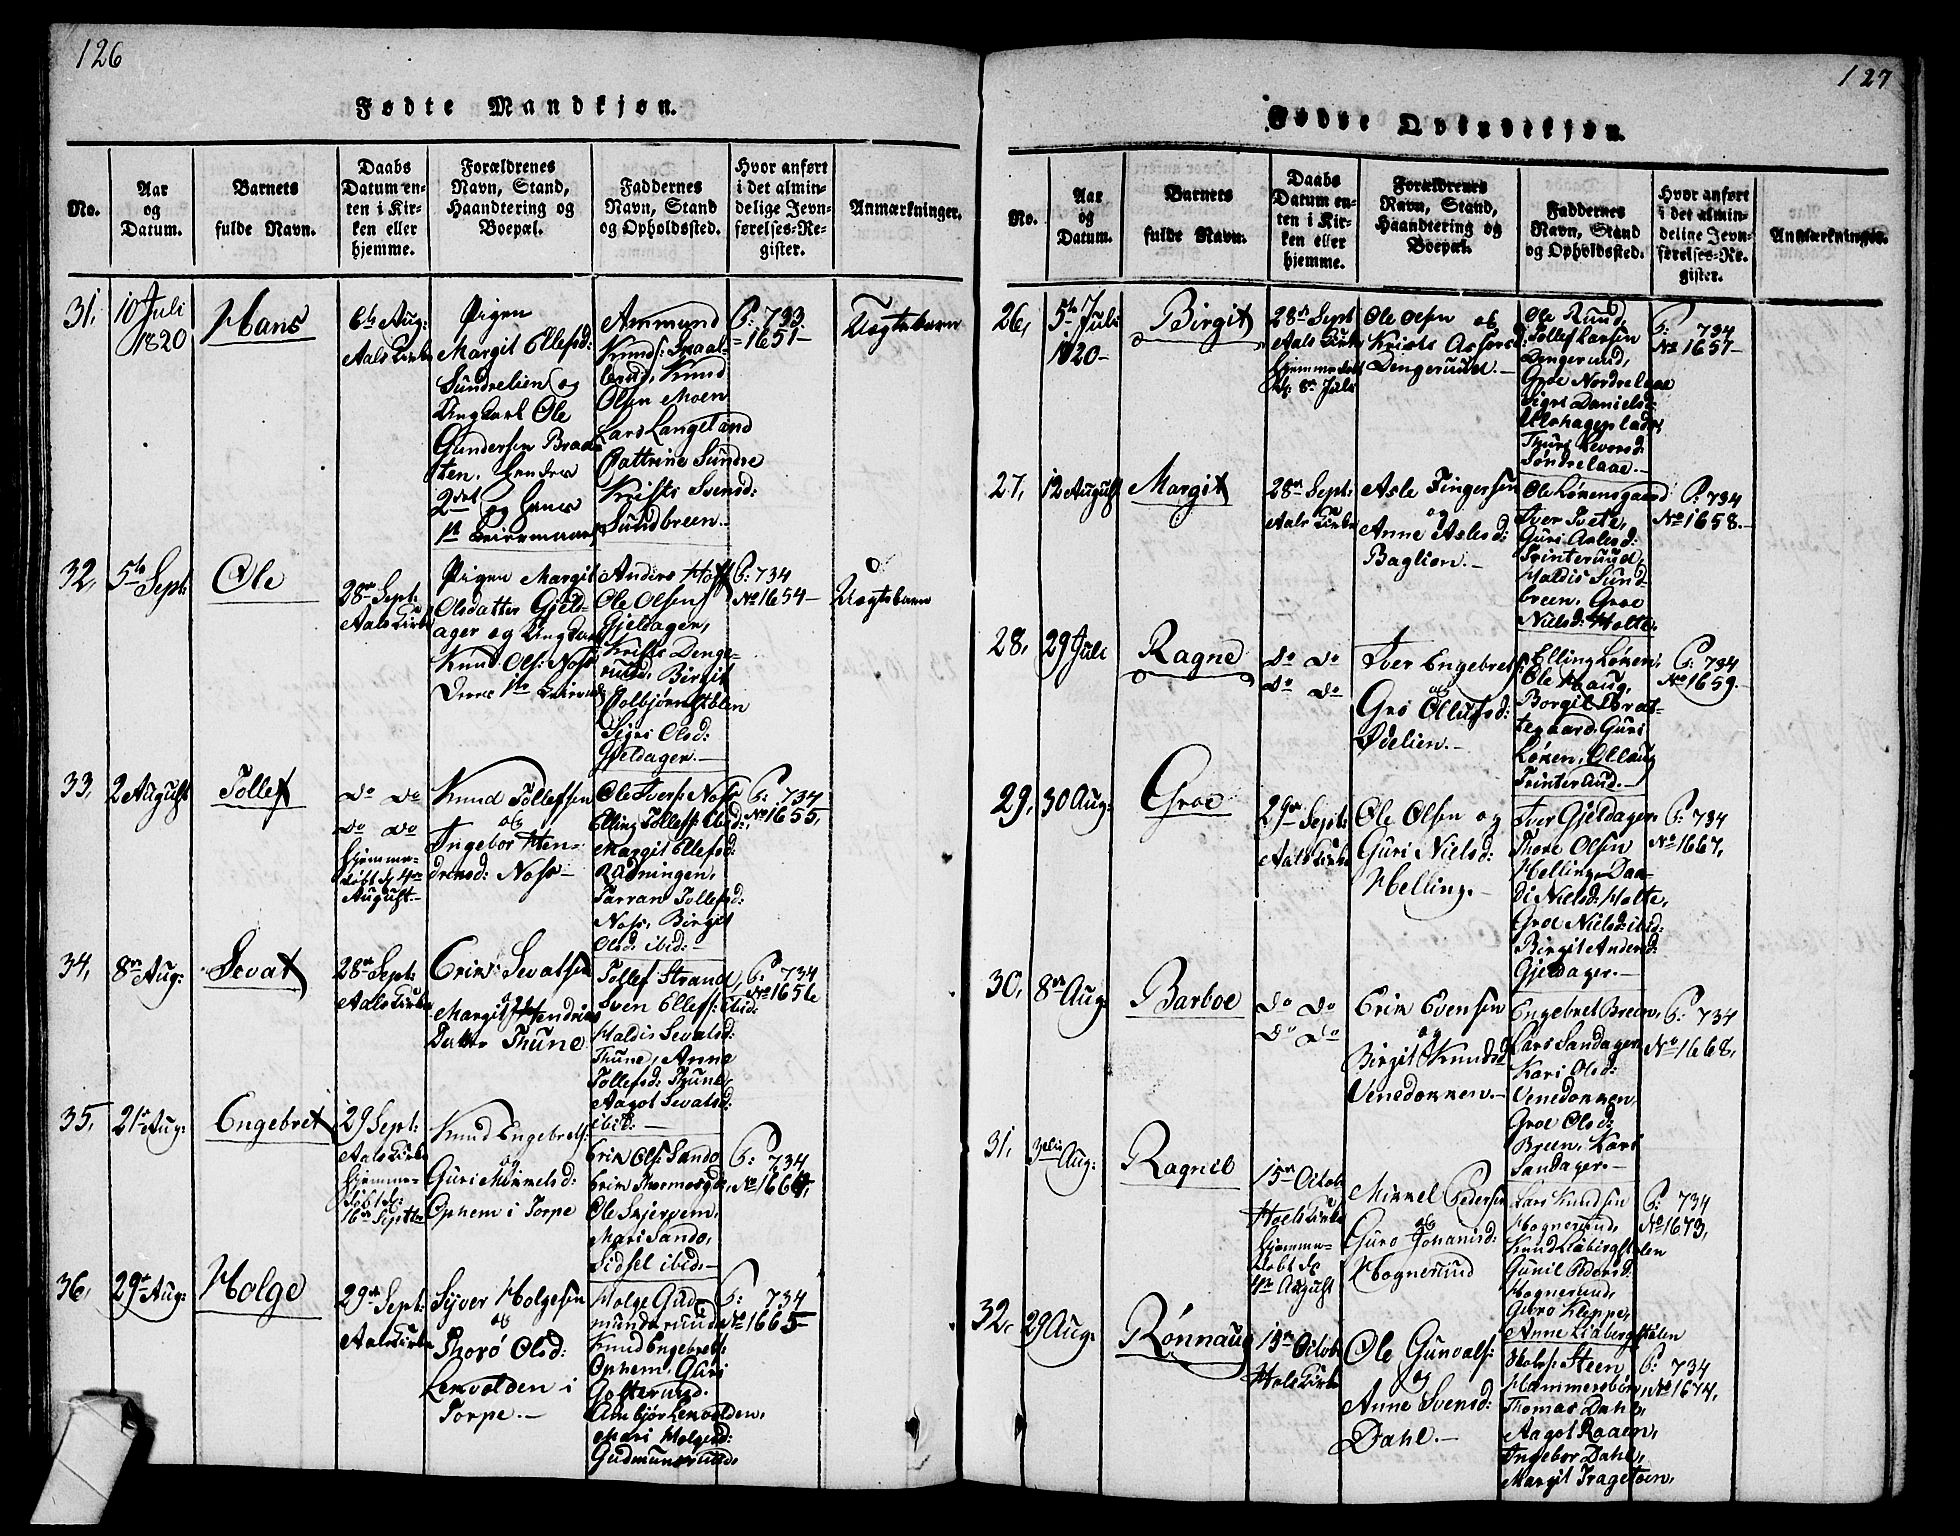 126
Fødte Mandkjøn.
No.
Aar
og
Datum.
Barnets
fulde Navn.
Daabs
Datum en-
ten i Kir-
ken eller
hjemme.
Forældrenes
Navn, Stand,
Haandtering og
Boepæl.
Faddernes
Navn, Stand
og Opholdssted.
Hvor anført
i det almin-
delige Jevn-
førelses-Re-
gister.
Anmærkninger.
31,
10 Juli
1820
Hans
6te Aug:
Aals Kirke
Pigen
Margit Ellefsd:
Sundrelien og
Ungkarl Ole
Gundersen Braa-
ten. hendes
2det og hans
1te Leiermaal
Ammund
Knuds: Skaal-
berud, Knud
Olsen Moen
Lars Langeland
Cattrine Sundre
Kristi Svensd:
Sundbreen.-
P: 733
1651-
Uægtebarn
32,
5te Sept:
Ole
28de Sept:
Aals Kirke
Pigen Margit
Olsdatter Gjeld-
ager og Ungkarl
Knud Ols: Noss
Deres 1te Leierm
Anders Hoff
Ole Olsen
Gjeldager,
Kristi Denge-
rud, Birgit
Tolbjørnstølen
Sigri Olsd:
Gjeldager.-
P: 734
No 1654-
Uægtebarn
33,
2 August
Tollef
do do
do do
hjemme-
døbt d. 4de
August.-
Knud Tollefsen
og
Ingebor Hen-
driksd: Noss-
Ole Ivers: Noss
Elling Tollefs: ibid:
Margit Ellefsd:
Rådningen,
Tarran Tollefsd:
Noss, Birgit
Olsd: ibid:-
P: 734
No 1655,
34,
8de Aug:
Sevat
28de Sept:
Aals Kirke
Erik Sevatsen
og
Margit Hendriks
Datter Thune
Tollef Strand,
Sven Ellefs: ibid:
Haldis Sevatsd:
Thune, Anne
Tollefsd: Thune,
Aagot Sevatsd:
ibid:-
P: 734
No 1656
35,
21de Aug:
Engebret
29 Sept:
Aals Kirke
hjemme-
døbt d:
16de Septbr
Knud Engebrets:
og
Guri Mikkelsd:
Ophem i Torpe
Erik Ols: Sando
Erik Thormosgd,
Ole Skjervem,
Mari Sando,
Sidsel ibid.-
P: 734
No 1664,
36,
29de Aug:
Holge
29de Sept:
Aals Kirke
Syver Holgesen
og
Thorø Olsd:
Lekvolden i
Torpe.-
Holge Gud-
mundsruud
Knud Engebrets:
Ophem, Guri
Golterud.
Ambjør Lekvolden,
Mari Holgesd:
Gudmunsruud,
P: 734
No 1665-
127
Fødte Qvindekjøn.
No.
Aar
og
Datum.
Barnets
fulde Navn.
Daabs
Datum en-
ten i Kir-
ken eller
hjemme.
Forældrenes
Navn, Stand,
Haandtering og
Boepæl.
Faddernes
Navn, Stand
og Opholdssted.
Hvor anført
i det almin-
delige Jevn-
førelses-Re-
gister.
Anmærkninger.
26,
5te Juli
1820-
Birgit
28de Sept
Aals Kirke
hjemmedøbt
d. 8de Juli
Ole Olsen og
Kristi Aslesd:
Dengeruud.-
Ole Ruud,
Tollef Larsen
Dengerud,
Groe Nordrelaae
Sigri Danielsd:
Ulshagepladst
Thuri Seversd:
Søndrelaae.-
P: 734
No 1657-
27,
12 August
Margit
28de Sept:
Aals Kirke
Asle Fingersen
og
Anne Aslesd:
Baglien.-
Ole Løkensgaard
Iver Tvete,
Guri Aslesd:
Trinteruud,
Haldis Sund-
breen, Groe
Nielsd: Holte.
P: 734
No 1658.-
28,
29 Juli
Ragne
do do
do do
Iver Engebrets:
og
Gro Ollufsd:
Ødelien.-
Elling Løken,
Ole Haug,
Borgil Brat-
tegaard, Guri
Løken, Ollaug
Trinterud.-
P: 734
No 1659.-
29,
30 Aug:
Groe
29de Sept:
Aals Kirke
Ole Olsen og
Guri Nielsd:
Helling.-
Iver Gjeldager
Thore Olsen
Helling, Daa-
di Nielsd: Holte,
Groe Nielsd: ibid:
Birgit Andersd:
Gjeldager.-
P: 734
No 1667,
30,
8de Aug:
Barboe
do do
do do
Erik Evensen
og
Birgit Knudsd:
Venedokken.-
Engebret Breen,
Lars Sandager
Kari Olsd:
Venedokken,
Groe Olsd:
Breen, Kari
Sandager.-
P: 734
No 1668,
31,
3die Aug:
Ragnil
15de Octob
Hols Kirke
hjemme-
døbt d.
4de August
Mikkel Pedersen
og
Guro Johanisd:
Hognerud
Lars Knudsen
Hognerud,
Knud Liabergstølen
Gunil Pedersd:
Hognerud,
Guro Kleppe,
Anne Liabergstølen
P: 734
No 1673,
32,
29 Aug:
Rønnaug
15de Octob
Hols Kirke
Ole Gunvals:
og
Anne Svensd:
Dahl.-
Steen
Hammersbøn,
Thomas Dahl,
Aagot Raaen,
Ingebor Dahl,
Margit Tragetøen,
P: 734
No 1674,